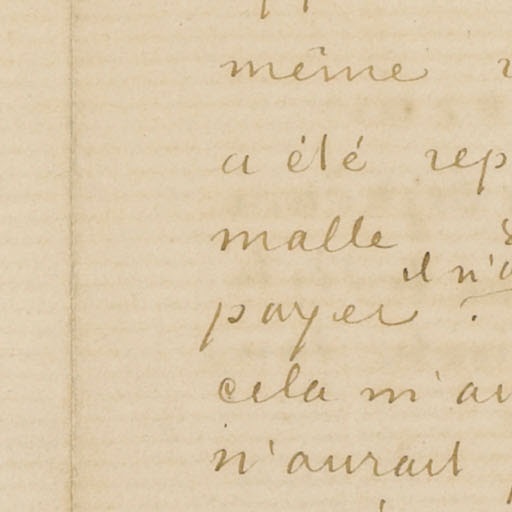 même
a été rep
malle
il n'a
payer.
cela m'au
n'aurait